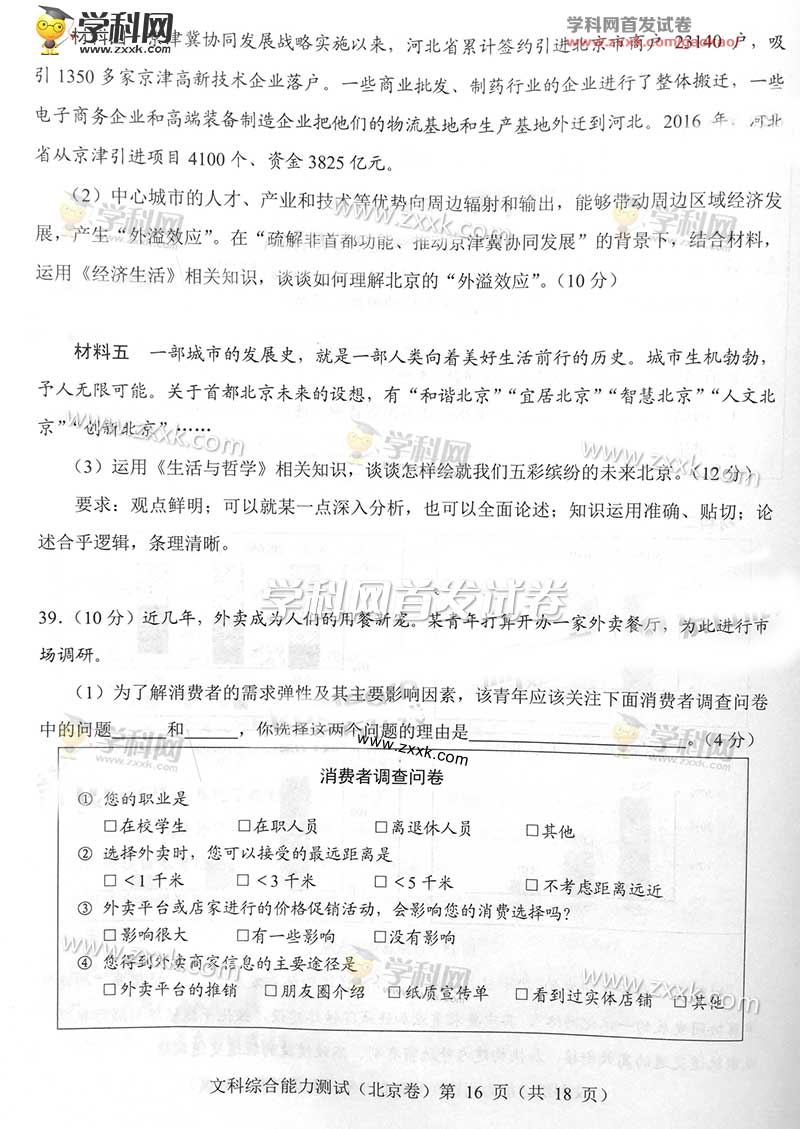 学科网首发试卷
www.zxxk.com/gaokao/
学科网
www.zxxk.com
材料四 京津冀协同发展战略实施以来,河北省累计签约引进北京市商户 23140 户,吸
引 1350 多家京津高新技术企业落户。一些商业批发、制药行业的企业进行了整体搬迁,一些
电子商务企业和高端装备制造企业把他们的物流基地和生产基地外迁到河北。2016 年,河北
省从京津引进项目 4100 个、资金 3825 亿元。
(2)中心城市的人才、产业和技术等优势向周边辐射和输出,能够带动周边区域经济发
展,产生“外溢效应”。在“疏解非首都功能、推动京津冀协同发展”的背景下,结合材料,
运用《经济生活》相关知识,谈谈如何理解北京的“外溢效应”。(10 分)
材料五 一部城市的发展史,就是一部人类向着美好生活前行的历史。城市生机勃勃,
予人无限可能。关于首都北京未来的设想,有“和谐北京”“宜居北京”“智慧北京”“人文北
京”“创新北京”……
(3)运用《生活与哲学》相关知识,谈谈怎样绘就我们五彩缤纷的未来北京。(12 分)
要求:观点鲜明;可以就某一点深入分析,也可以全面论述;知识运用准确、贴切;论
述合乎逻辑,条理清晰。
学科网首发试卷
39.(10 分)近几年,外卖成为人们的用餐新宠。某青年打算开办一家外卖餐厅,为此进行市
场调研。
(1)为了解消费者的需求弹性及其主要影响因素,该青年应该关注下面消费者调查问卷
中的问题______和______,你选择这两个问题的理由是____________________。(4 分)
消费者调查问卷
① 您的职业是
□在校学生 □在职人员 □离退休人员 □其他
② 选择外卖时,您可以接受的最远距离是
□<1 千米 □<3 千米 □<5 千米 □不考虑距离远近
③ 外卖平台或店家进行的价格促销活动,会影响您的消费选择吗?
□影响很大 □有一些影响 □没有影响
④ 您得到外卖商家信息的主要途径是
□外卖平台的推销 □朋友圈介绍 □纸质宣传单 □看到过实体店铺 □其他
文科综合能力测试(北京卷)第 16 页(共 18 页)